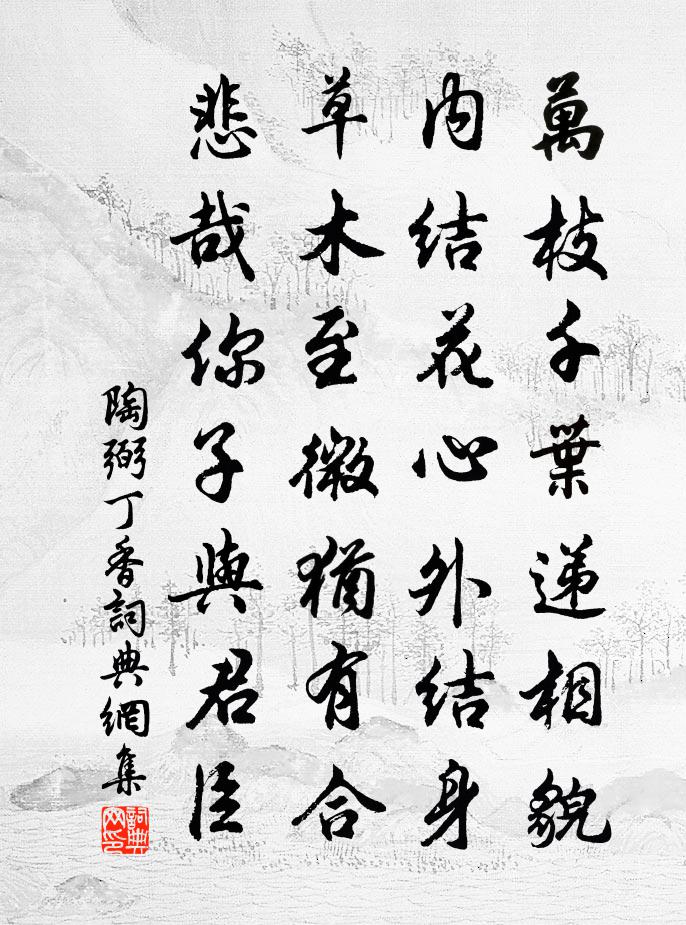 萬枝千葉遞相貌
內結花心外結身
草木至微猶有合
悲哉你子與君臣
陶弼丁香詞典網集
詞典
网印